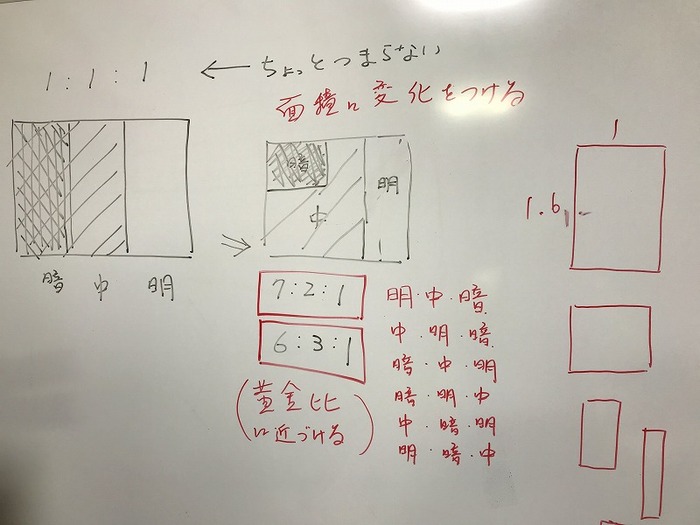 1:1:1 ← ちょっとつまらない
面積に変化をつける
暗 中 明
暗
中
明
7:2:1
6:3:1
(黄金比
に近づける)
明・中・暗
中・明・暗
暗・中・明
暗・明・中
中・暗・明
明・暗・中
1
1.6